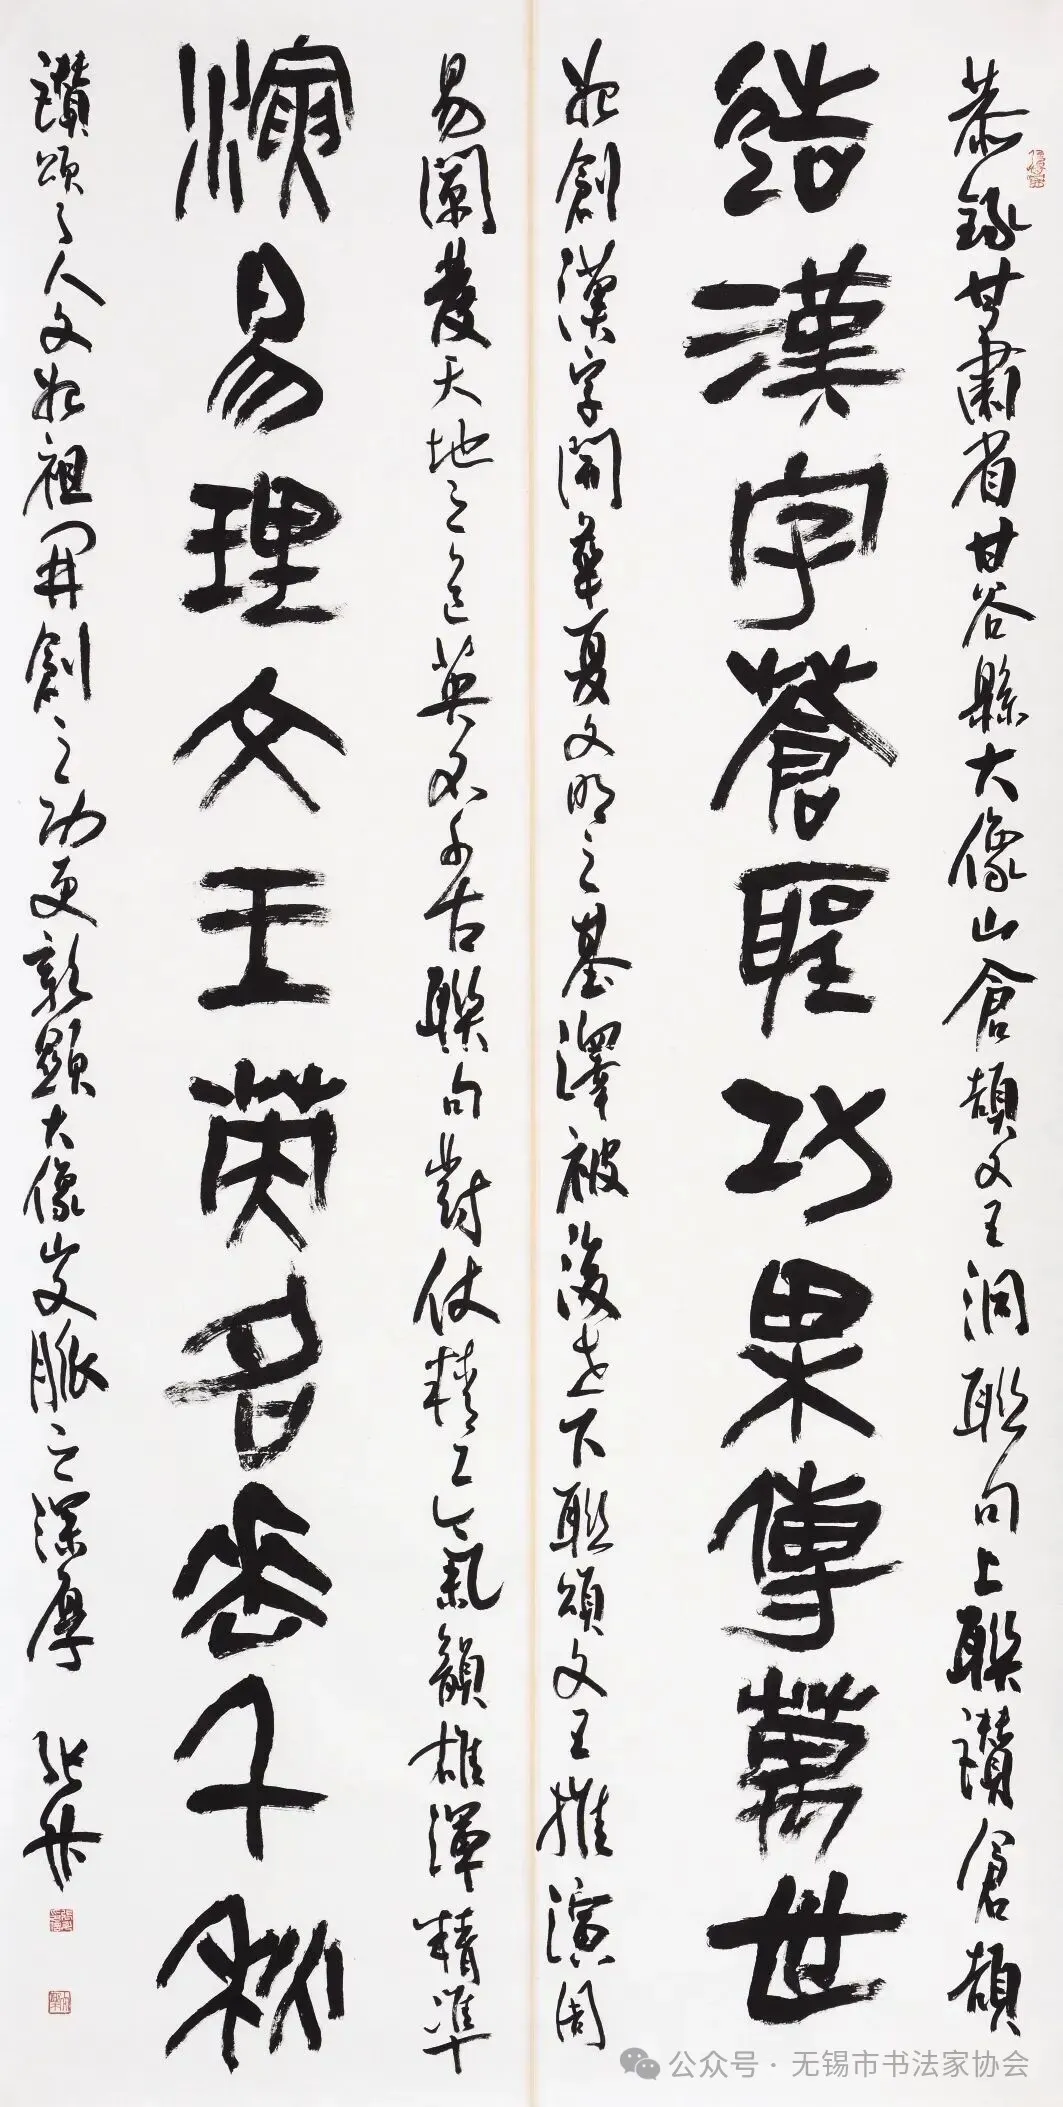 恭録甘肅省甘谷縣大像山倉頡文王洞聯句上聯讚倉頡
造漢字蒼聖功果傳萬世
始創漢字開華夏文明之基澤被後世下聯頌文王推演周
演易理文王英名垂千秋
易闡發天地之道英名千古聯句對仗精工氣韻雄渾精準
讚頌了人文始祖開創之功更彰顯大像山文脈之深厚 張
公众号 · 无锡市书法家协会